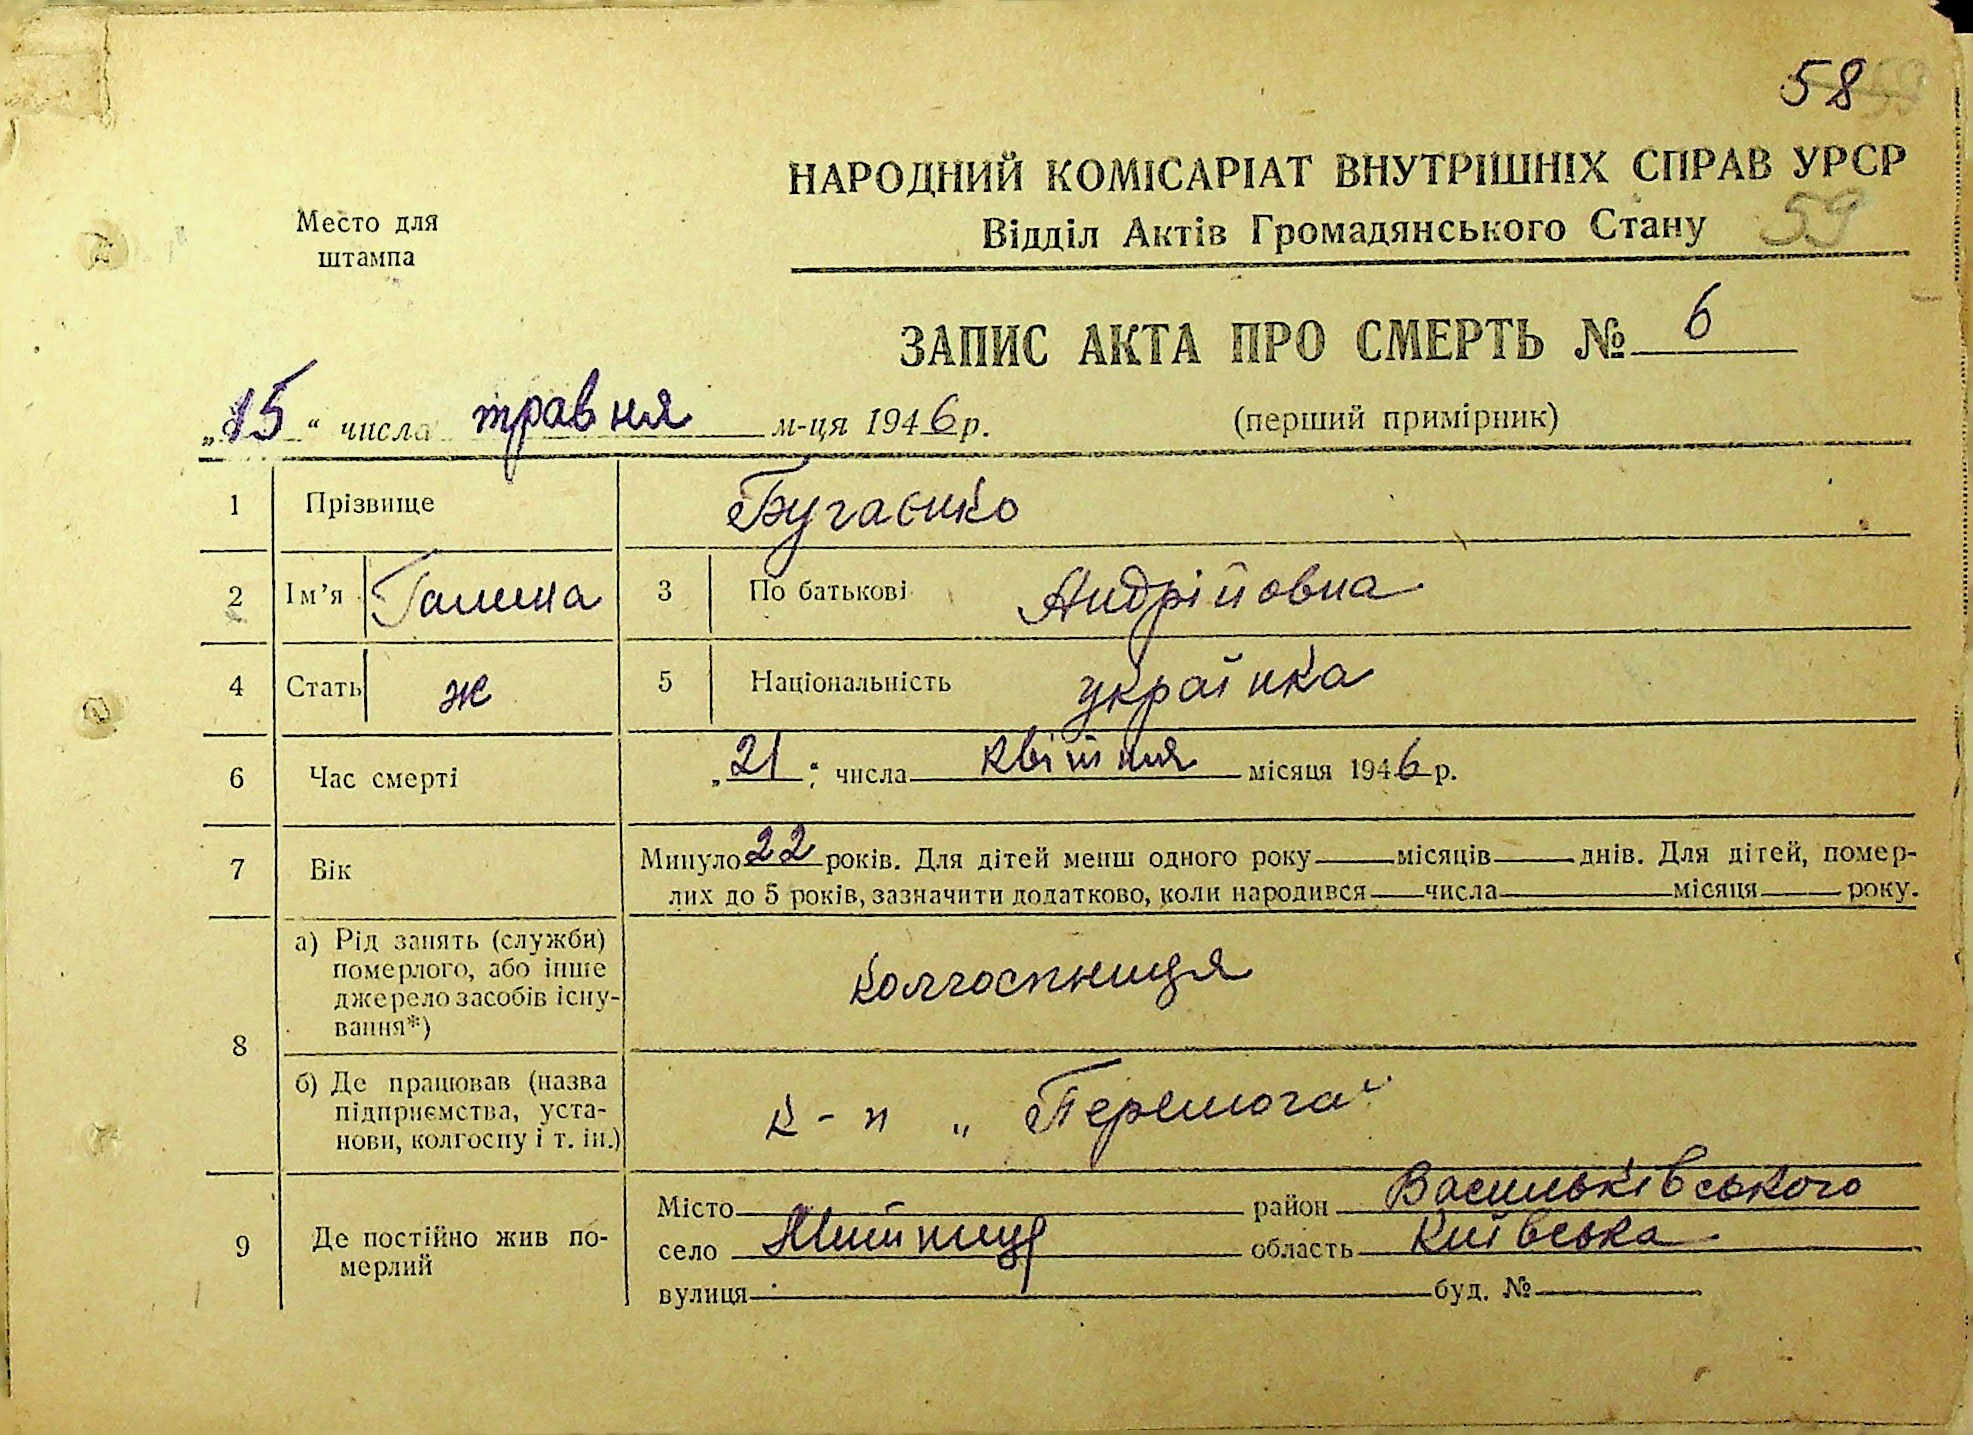 58
НАРОДНИЙ КОМІСАРІАТ ВНУТРІШНІХ СПРАВ УРСР
Відділ Актів Громадянського Стану 59
Место для
штампа
ЗАПИС АКТА ПРО СМЕРТЬ № 6
„15“ числа травня м-ця 1946 р. (перший примірник)
1 Прізвище Бугаєнко
2 Ім’я Галина 3 По батькові Андрійовна
4 Стать ж 5 Національність українка
6 Час смерті „21“ числа квітня місяця 1946 р.
7 Вік Минуло 22 років. Для дітей менш одного року місяців днів. Для дітей, помер-
лих до 5 років, зазначити додатково, коли народився числа місяця року.
8 а) Рід занять (служби)
померлого, або інше
джерело засобів існу-
вання*)
колгоспниця
б) Де працював (назва
підприємства, уста-
нови, колгоспу і т. ін.)
к-п „Перемога“
9 Де постійно жив по-
мерлий
Місто район Васильківського
село Митниця область Київська
вулиця буд. №